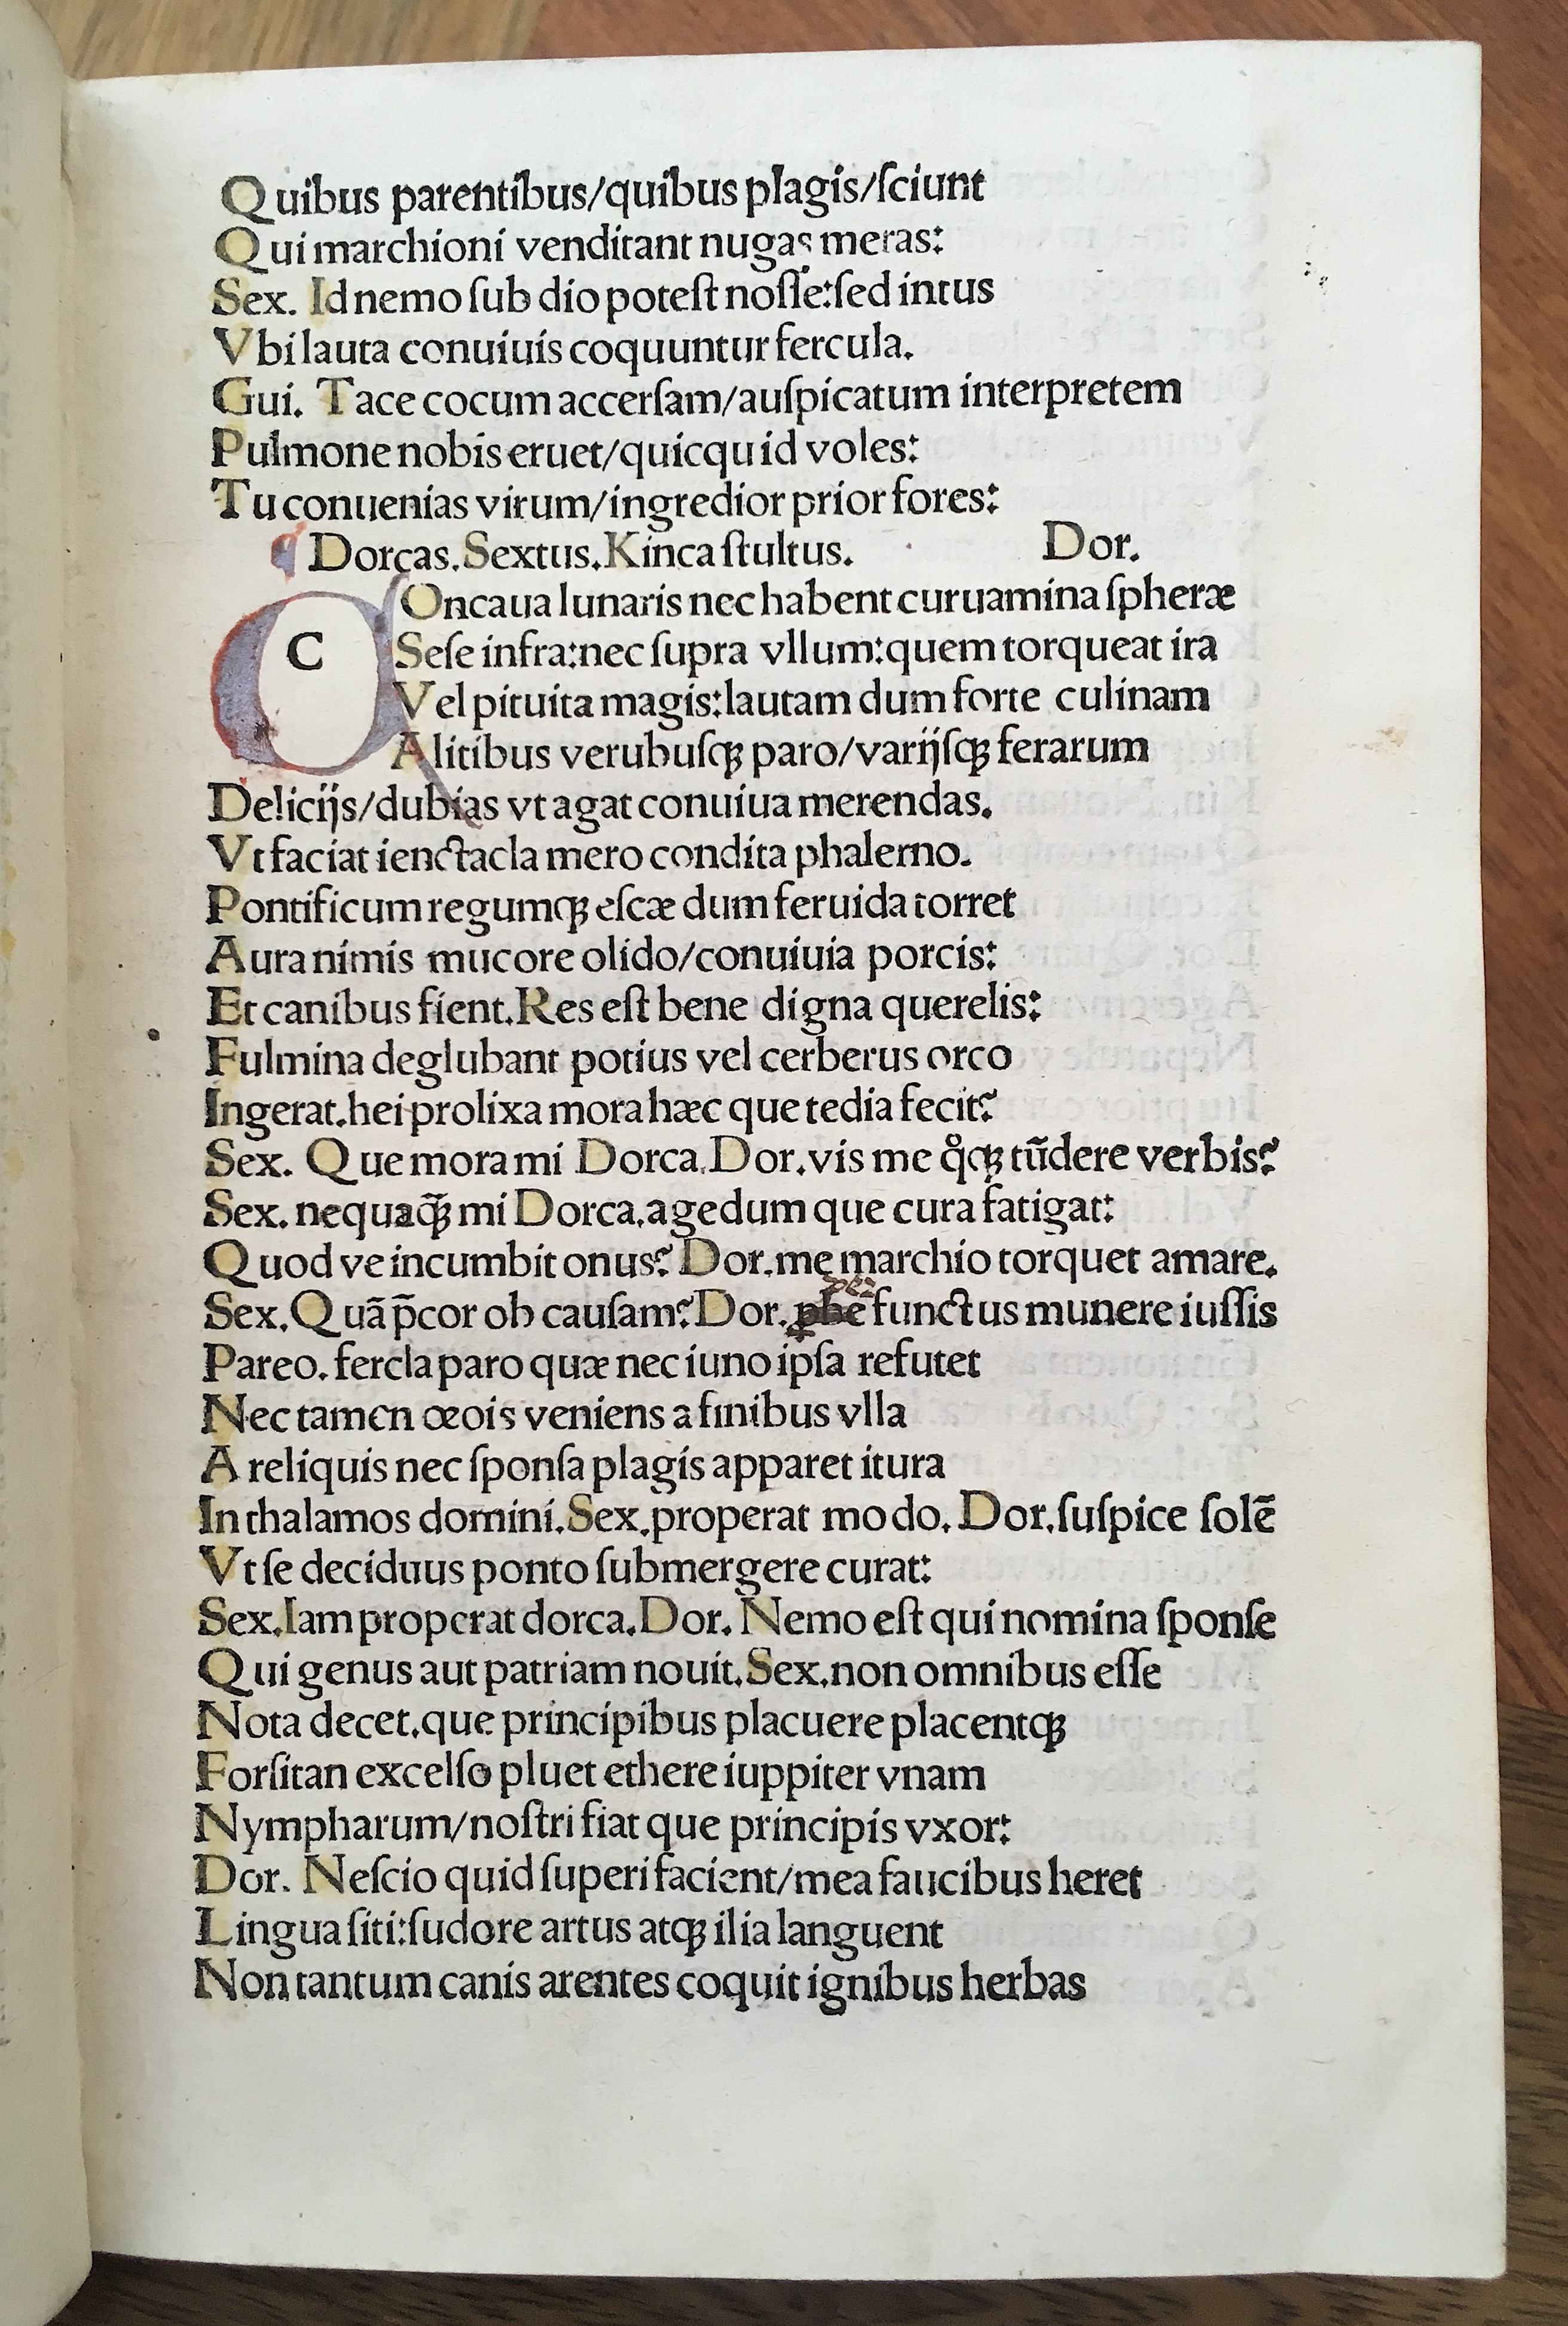 Quibus parentibus/quibus plagis/ſciunt
Qui marchioni venditant nugas meras:
Sex. Id nemo ſub dio poteſt noſſe:ſed intus
Vbi lauta conuiuis coquuntur fercula.
Gui. Tace cocum accerſam/auſpicatum interpretem
Pulmone nobis eruet/quicquid voles:
Tu conuenias virum/ingredior prior fores:
¶ Dorcas.Sextus.Kinca ſtultus. Dor.
C Oncaua lunaris nec habent curuamina ſpheræ
Seſe infra:nec ſupra vllum:quem torqueat ira
Vel pituita magis:lautam dum forte culinam
Alitibus verubuſqꝫ paro/varijſqꝫ ferarum
Delicijs/dubias vt agat conuiua merendas.
Vt faciat ienctacla mero condita phalerno.
Pontificum regumqꝫ eſcæ dum feruida torret
Aura nimis mucore olido/conuiuia porcis:
Et canibus fient.Res eſt bene digna querelis:
Fulmina deglubant potius vel cerberus orco
Ingerat.hei prolixa mora hæc que tedia fecit?
Sex. Que mora mi Dorca.Dor.vis me qͦqꝫ tūdere verbis?
Sex. nequaqꝫ̃ mi Dorca.agedum que cura fatigat:
Quod ve incumbit onus? Dor.me marchio torquet amare.
Sex.Quā p̄cor ob cauſam?Dor. phe functus munere iuſſis
Pareo.fercla paro quæ nec iuno ipſa refutet
Nec tamen œois veniens a finibus vlla
A reliquis nec ſponſa plagis apparet itura
In thalamos domini.Sex.properat modo.Dor.ſuſpice ſolē
Vt ſe deciduus ponto ſubmergere curat:
Sex.Iam properat dorca.Dor. Nemo eſt qui nomina ſponſe
Qui genus aut patriam nouit.Sex.non omnibus eſſe
Nota decet.que principibus placuere placentqꝫ
Forſitan excelſo pluet ethere iuppiter vnam
Nympharum/noſtri fiat que principis vxor:
Dor. Neſcio quid ſuperi facient/mea faucibus heret
Lingua ſiti:ſudore artus atqꝫ ilia languent
Non tantum canis arentes coquit ignibus herbas